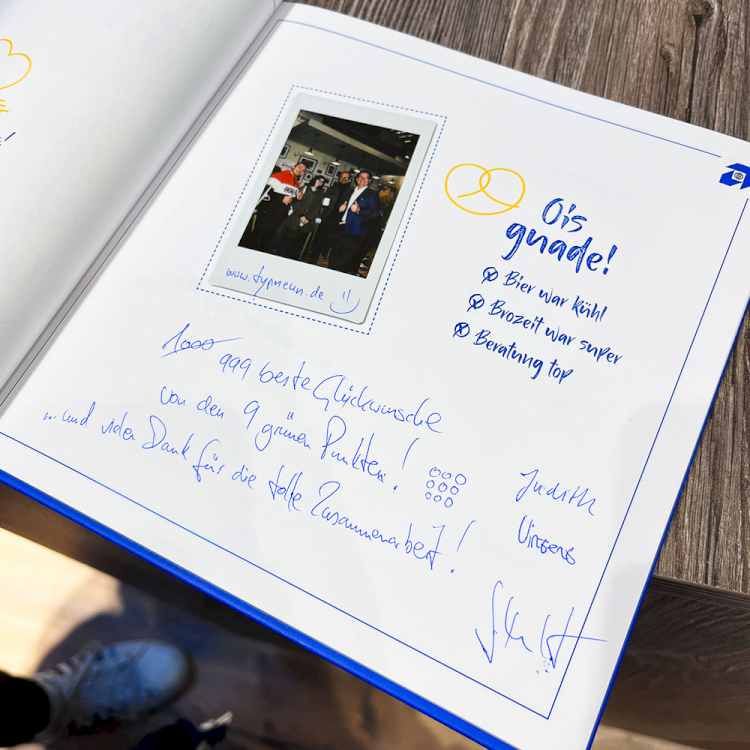 www.typneun.de
Ois
gnade!
Bier war kühl
Brozeit war super
Beratung top
1000 999 beste Glückwünsche
von den 9 grünen Punkten!
... und vielen Dank für die tolle Zusammenarbeit!
Judith
Vinzens